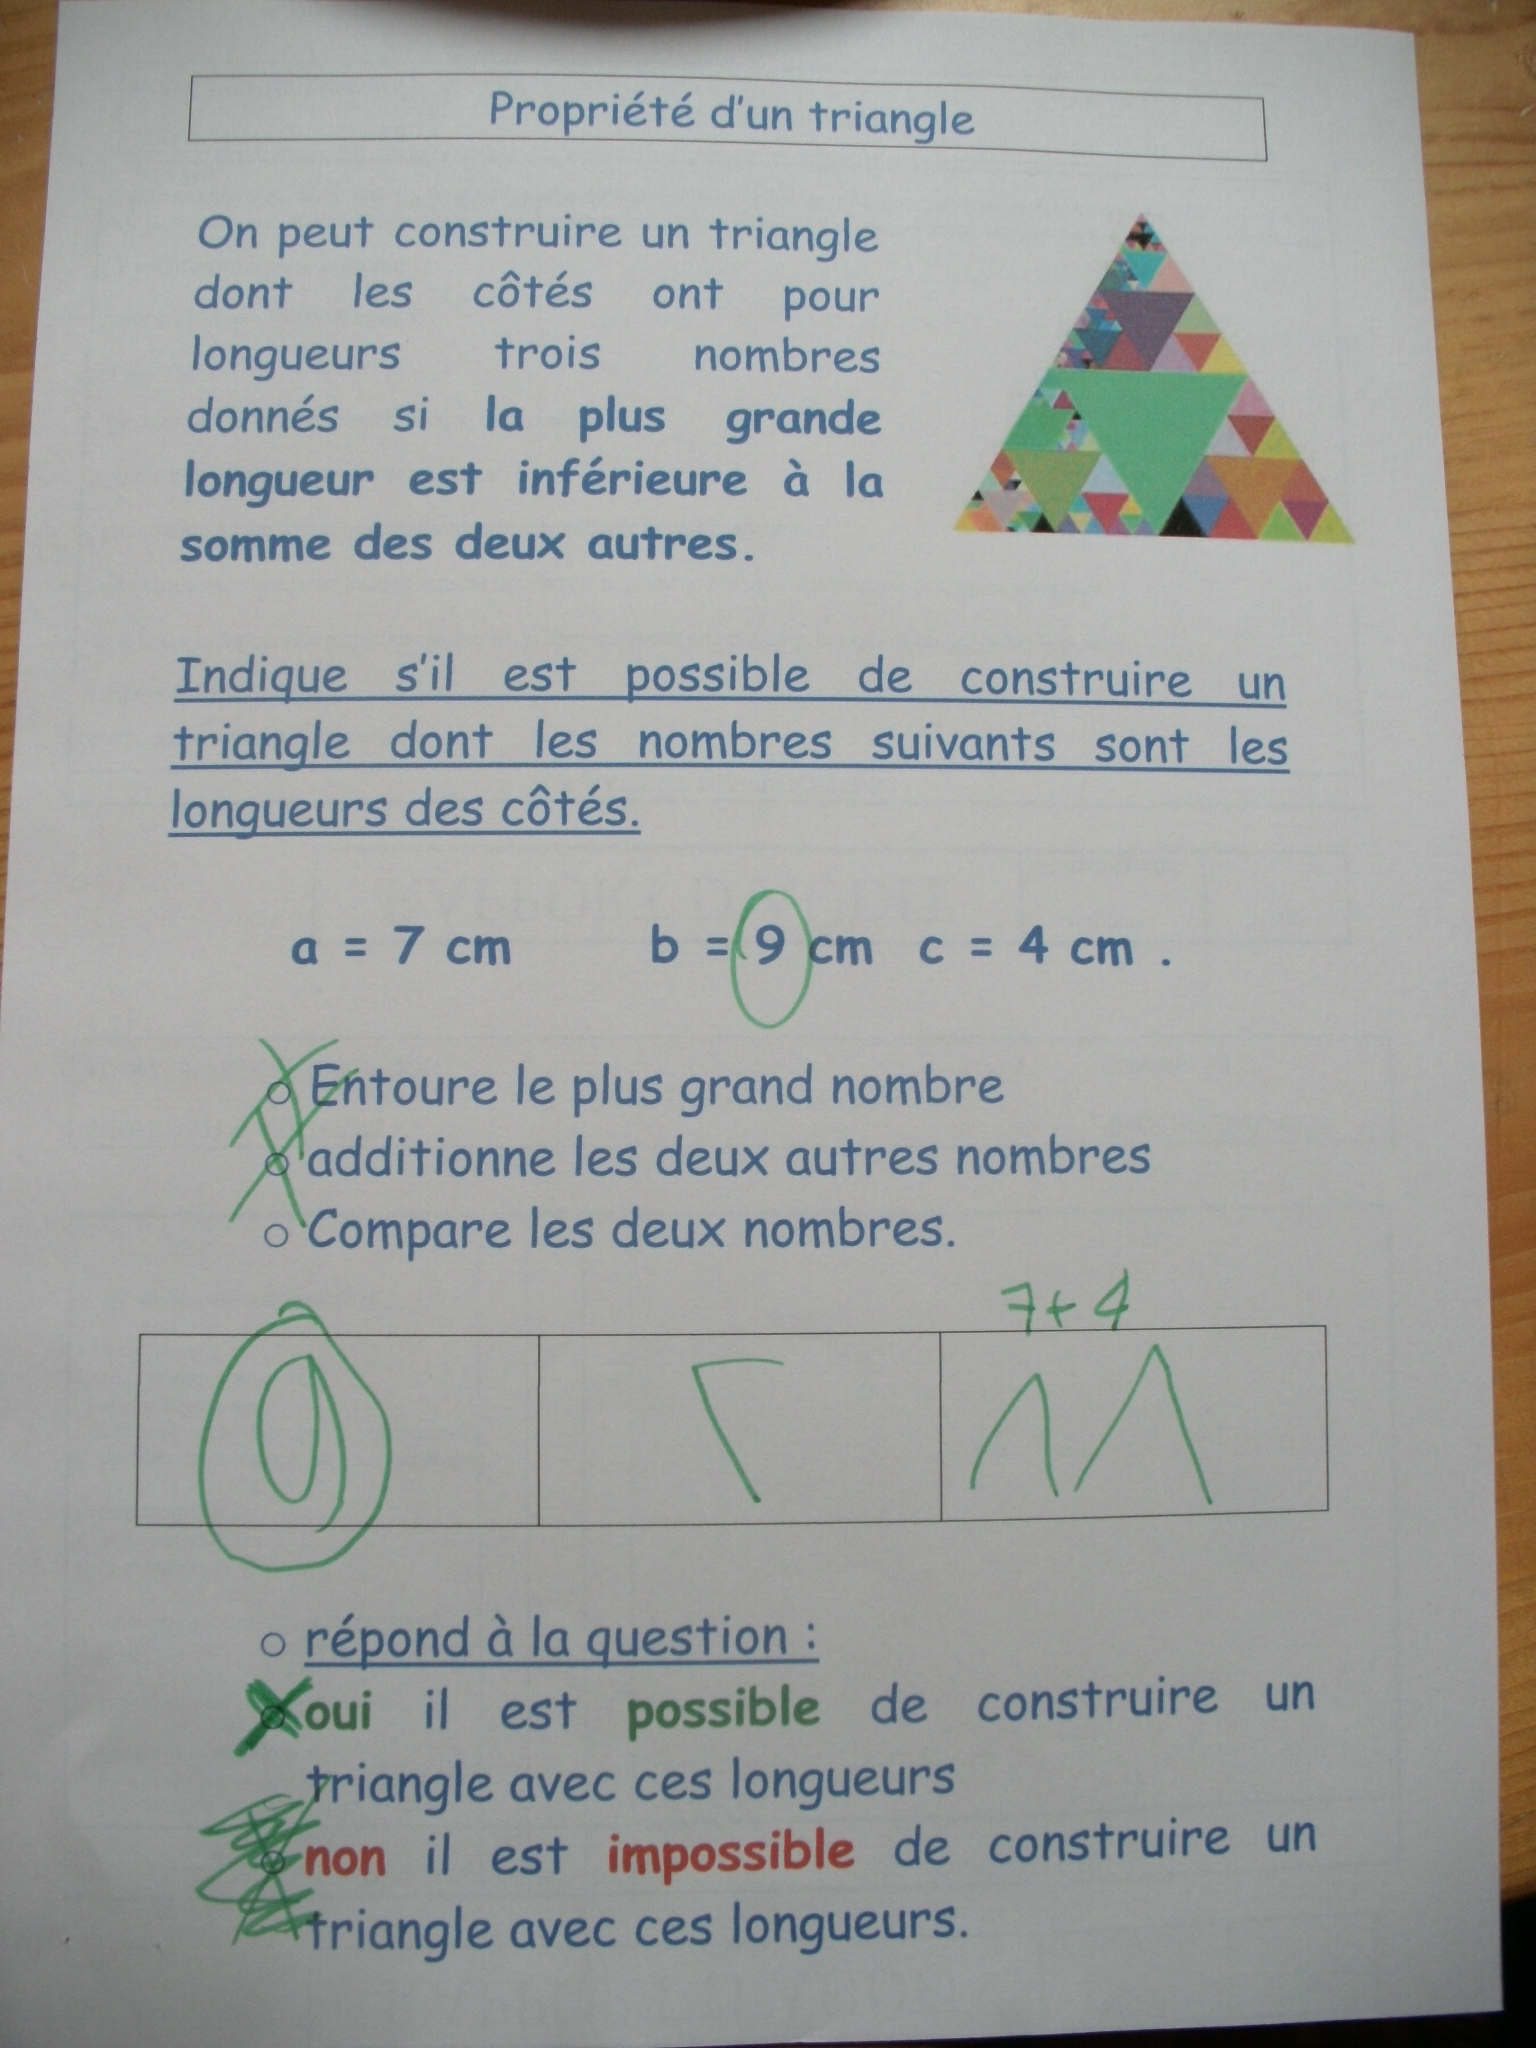 Propriété d'un triangle
On peut construire un triangle
dont les côtés ont pour
longueurs trois nombres
donnés si la plus grande
longueur est inférieure à la
somme des deux autres.
Indique s'il est possible de construire un
triangle dont les nombres suivants sont les
longueurs des côtés.
a = 7 cm b = 9 cm c = 4 cm .
Entoure le plus grand nombre
additionne les deux autres nombres
Compare les deux nombres.
7+4
9 11
répond à la question :
oui il est possible de construire un
triangle avec ces longueurs
non il est impossible de construire un
triangle avec ces longueurs.